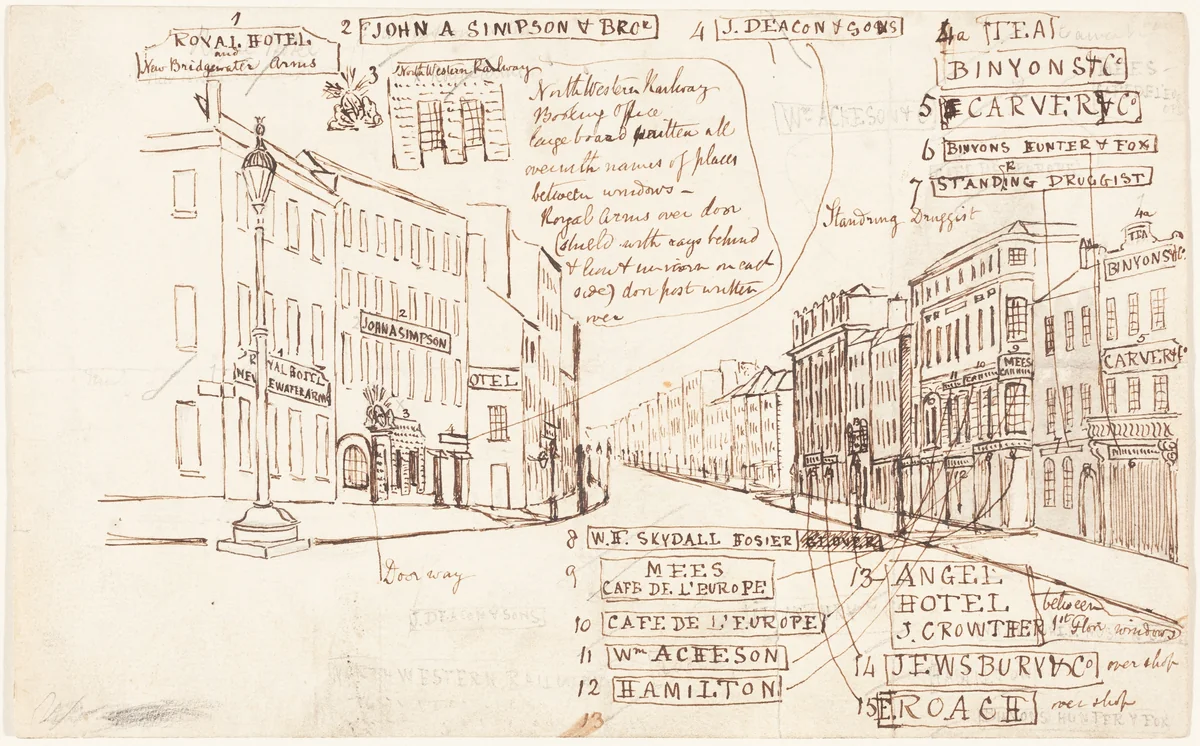 1
ROYAL HOTEL
and
New Bridgewater Arms
2 JOHN A SIMPSON & BROR
4 J. DEACON & SONS
4a TEA
BINYONS & Co
5 CARVER & Co
6 BINYONS HUNTER & FOX
R
7 STANDING DRUGGIST
Standring Druggist
3
North Western Railway
North Western Railway
Booking Office
large board written all
over with names of places
between windows —
Royal Arms over door
(shield with rays behind
& lion & unicorn on each
side) door post written
over
2
JOHN A SIMPSON
1
ROYAL HOTEL
NEW EWATER ARMS
3
4
OTEL
4a
TEA
BINYONS & Co.
5
CARVER & Co
9
MEES
10
11
12
7
6
13
14
15
Door way
8 W. H. SKYDALL HOSIER GLOVER
9 MEES
CAFE DE L'EUROPE
10 CAFE DE L'EUROPE
11 Wm ACHESON
12 HAMILTON
13 ANGEL
HOTEL
J. CROWTHER
between
1st Floor windows
14 JEWSBURY & Co over shop
15 E ROACH over shop
13
Wm ACHESON &
J. DEACON & SONS
NORTH WESTERN RAILWAY
HUNTER & FOX